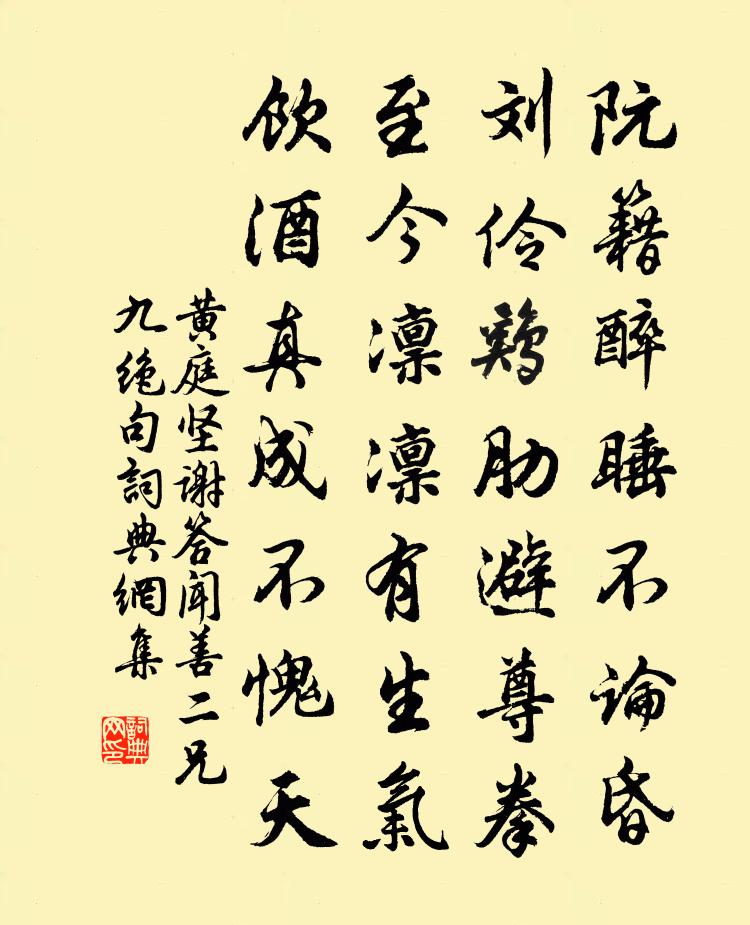 阮籍醉睡不論昏
刘伶鷄肋避尊拳
至今凛凛有生氣
飲酒真成不愧天
黄庭坚谢答闻善二兄
九绝句詞典網集
詞典
网印